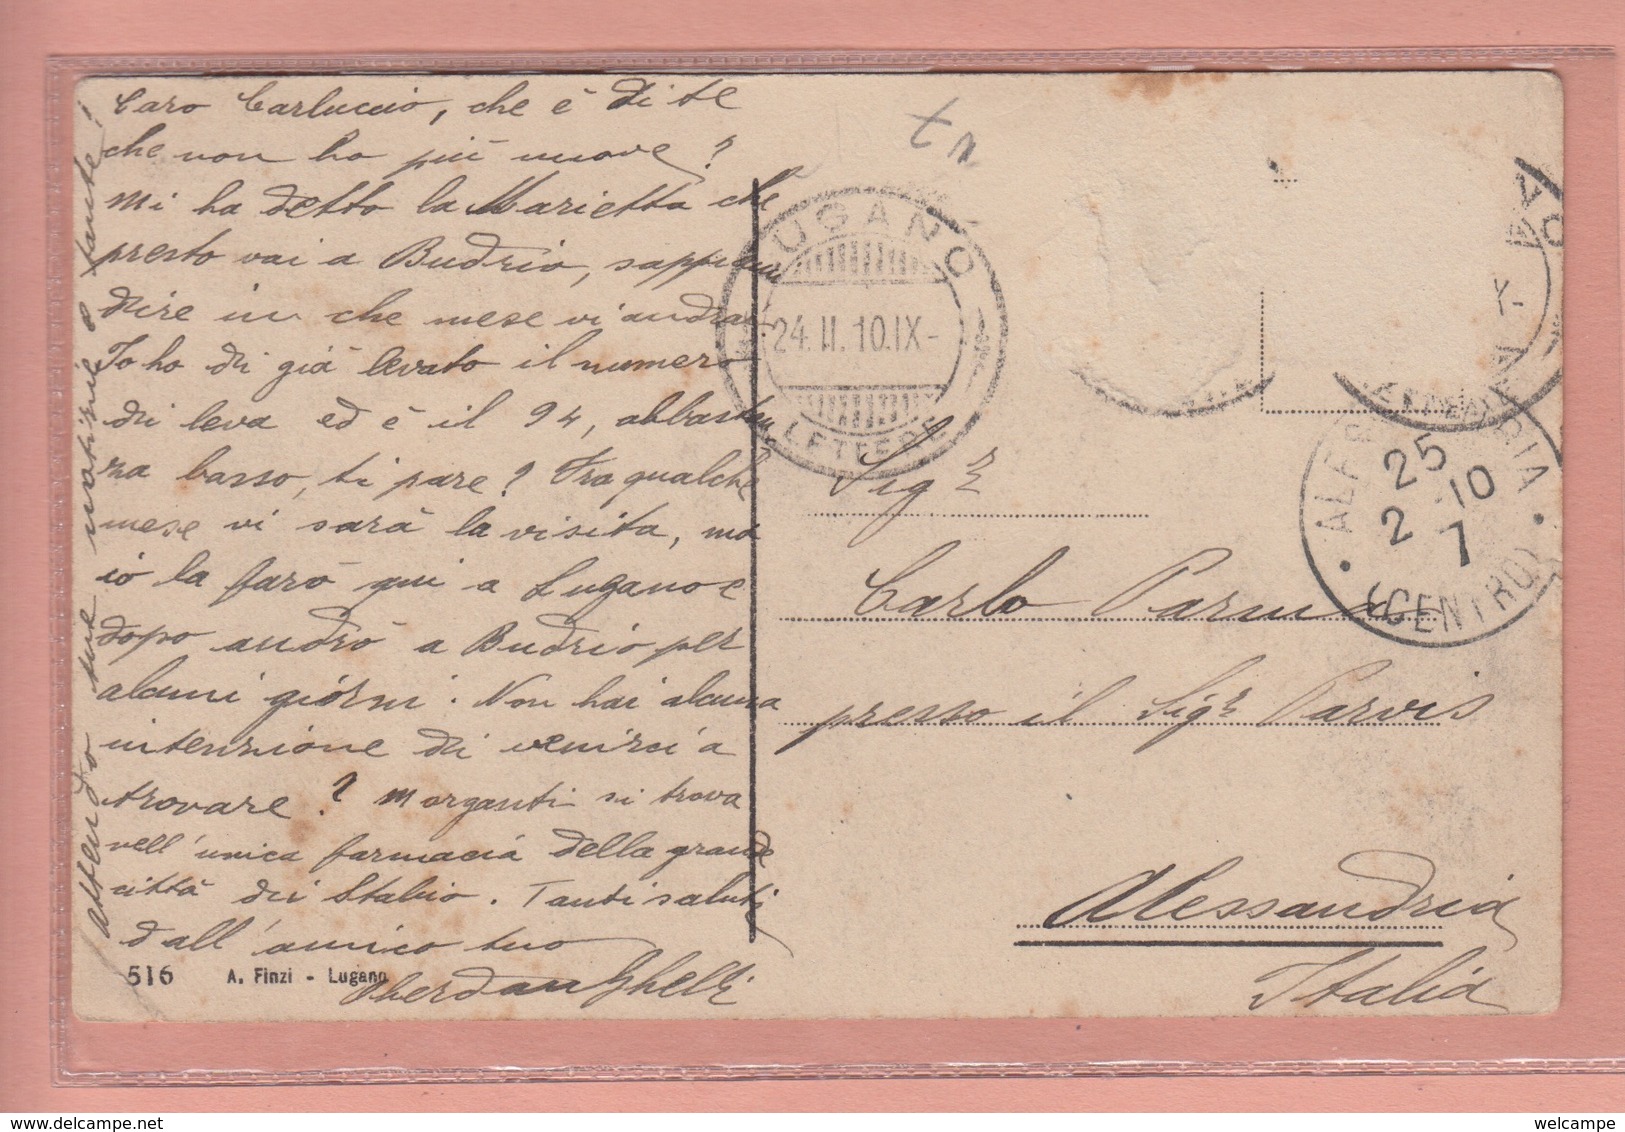 Caro Carluccio, che è di te
che non ho più nuove?
Mi ha detto la Marietta che
presto vai a Budrio, sappimi
dire in che mese vi andrai.
Io ho di già levato il numero
di leva ed è il 94, abbastan
za basso, ti pare? Fra qualche
mese vi sarà la visita, ma
io la farò qui a Lugano e
dopo andrò a Budrio per
alcuni giorni. Non hai alcuna
intenzione di venirci a
trovare? Morganti si trova
nell'unica farmacia della grande
città di Stabio. Tanti saluti
dall'amico tuo
Ghelli
attendo tue notizie e tante!
516 A. Finzi - Lugano
LUGANO
24.II.10.IX-
LETTERE
ALESSANDRIA
25
2 10
7
(CENTRO)
Sigr
Carlo Parma
presso il Sigr Parvis
Alessandria
Italia
delcampe.net
welcampe